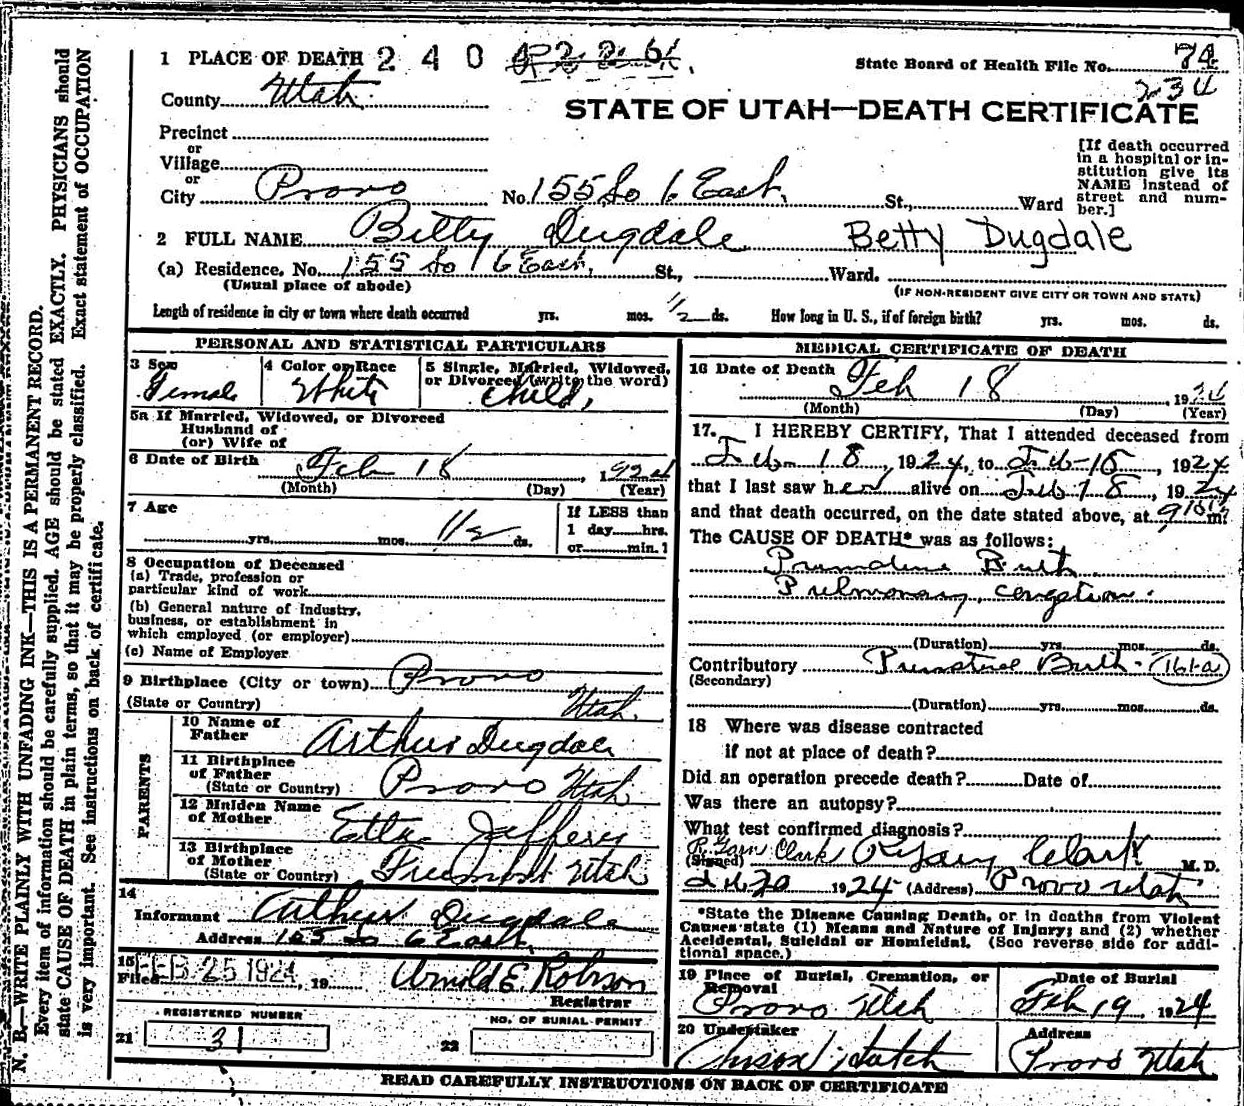 1 PLACE OF DEATH 2 4 0
State Board of Health File No. 74
234
County Utah
STATE OF UTAH—DEATH CERTIFICATE
Precinct
or
Village
or
City Provo No. 155 So 6 East St., Ward
[If death occurred
in a hospital or in-
stitution give its
NAME instead of
street and num-
ber.]
2 FULL NAME Betty Dugdale Betty Dugdale
(a) Residence, No. 155 So 6 East, St., Ward.
(Usual place of abode)
(IF NON-RESIDENT GIVE CITY OR TOWN AND STATE)
Length of residence in city or town where death occurred yrs. mos. 1/2 ds. How long in U. S., if of foreign birth? yrs. mos. ds.
PERSONAL AND STATISTICAL PARTICULARS
3 Sex
Female
4 Color or Race
White
5 Single, Married, Widowed,
or Divorced (write the word)
Child,
5a If Married, Widowed, or Divorced
Husband of
(or) Wife of
6 Date of Birth Feb 18, 1924
(Month) (Day) (Year)
7 Age
yrs. mos. 1/2 ds.
If LESS than
1 day hrs.
or min. ?
8 Occupation of Deceased
(a) Trade, profession or
particular kind of work
(b) General nature of industry,
business, or establishment in
which employed (or employer)
(c) Name of Employer
9 Birthplace (City or town) Provo
(State or Country) Utah.
PARENTS
10 Name of
Father Arthur Dugdale
11 Birthplace
of Father
(State or Country) Provo Utah
12 Maiden Name
of Mother Etta Jeffery
13 Birthplace
of Mother
(State or Country) Freemont Utah
14
Informant Arthur Dugdale
Address 155 So 6 East,
15
Filed FEB 25 1924, 19 Arnold E. Robison
Registrar
REGISTERED NUMBER
21 31
NO. OF BURIAL PERMIT
22
MEDICAL CERTIFICATE OF DEATH
16 Date of Death Feb 18, 1924
(Month) (Day) (Year)
17. I HEREBY CERTIFY, That I attended deceased from
Feb 18, 1924, to Feb 18, 1924
that I last saw her alive on Feb 18, 1924
and that death occurred, on the date stated above, at m?
The CAUSE OF DEATH* was as follows:
Premature Birth
Pulmonary congestion.
(Duration) yrs. mos. ds.
Contributory Premature Birth. (161-a)
(Secondary)
(Duration) yrs. mos. ds.
18 Where was disease contracted
if not at place of death?
Did an operation precede death? Date of
Was there an autopsy?
What test confirmed diagnosis?
R. Garn Clark
(Signed) R Garn Clark M. D.
Feb 20 1924 (Address) Provo Utah
*State the Disease Causing Death, or in deaths from Violent
Causes state (1) Means and Nature of Injury; and (2) whether
Accidental, Suicidal or Homicidal. (See reverse side for addi-
tional space.)
19 Place of Burial, Cremation, or
Removal
Provo Utah
Date of Burial
Feb 19 1924
20 Undertaker
Hatch
Address
Provo Utah
READ CAREFULLY INSTRUCTIONS ON BACK OF CERTIFICATE
N. B.—WRITE PLAINLY WITH UNFADING INK—THIS IS A PERMANENT RECORD.
Every item of information should be carefully supplied. AGE should be stated EXACTLY. PHYSICIANS should
state CAUSE OF DEATH in plain terms, so that it may be properly classified. Exact statement of OCCUPATION
is very important. See instructions on back of certificate.